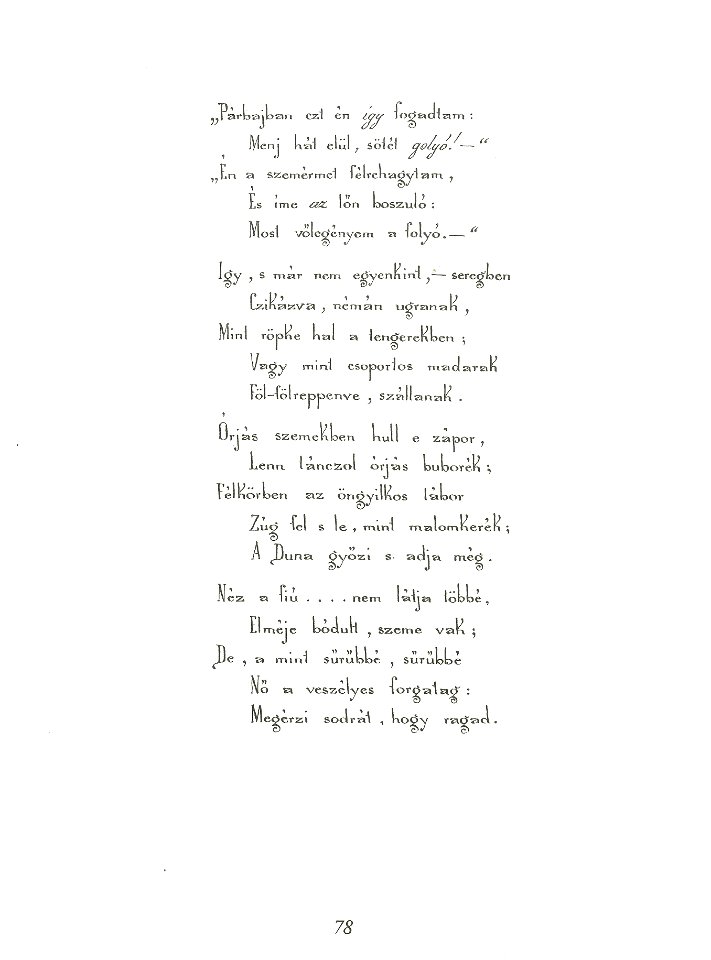 „Párbajban ezt én így fogadtam:
Menj hát elül, sötét golyó!—“
„Én a szemérmet félrehagytam,
És íme az lőn boszuló:
Most vőlegényem a folyó.—“
Igy, s már nem egyenkint,— seregben
Czikázva, némán ugranak,
Mint röpke hal a tengerekben;
Vagy mint csoportos madarak
Föl-fölreppenve, szállanak.
Órjás szemekben hull e zápor,
Lenn tánczol órjás buborék;
Félkörben az öngyilkos tábor
Zúg fel s le, mint malomkerék;
A Duna győzi s adja még.
Néz a fiú.... nem látja többé,
Elméje bódult, szeme vak;
De, a mint sűrűbbé, sűrűbbé
Nő a veszélyes forgatag:
Megérzi sodrát, hogy ragad.
78